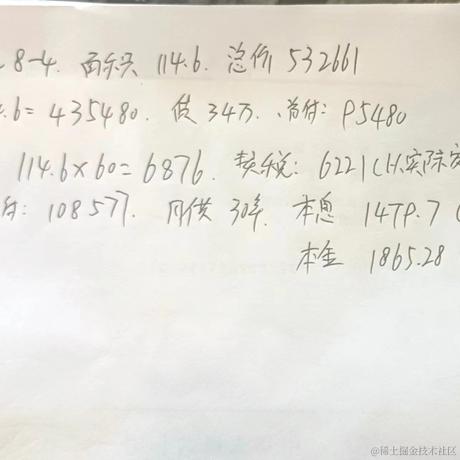 8-4. 面积 114.6. 总价 532661
.6=435480. 贷 34万. 首付: 95480
114.6×60=6876. 契税: 6221(以实际
付: 108577. 月供 30年. 本息 1479.7(
本金 1865.28
@稀土掘金技术社区